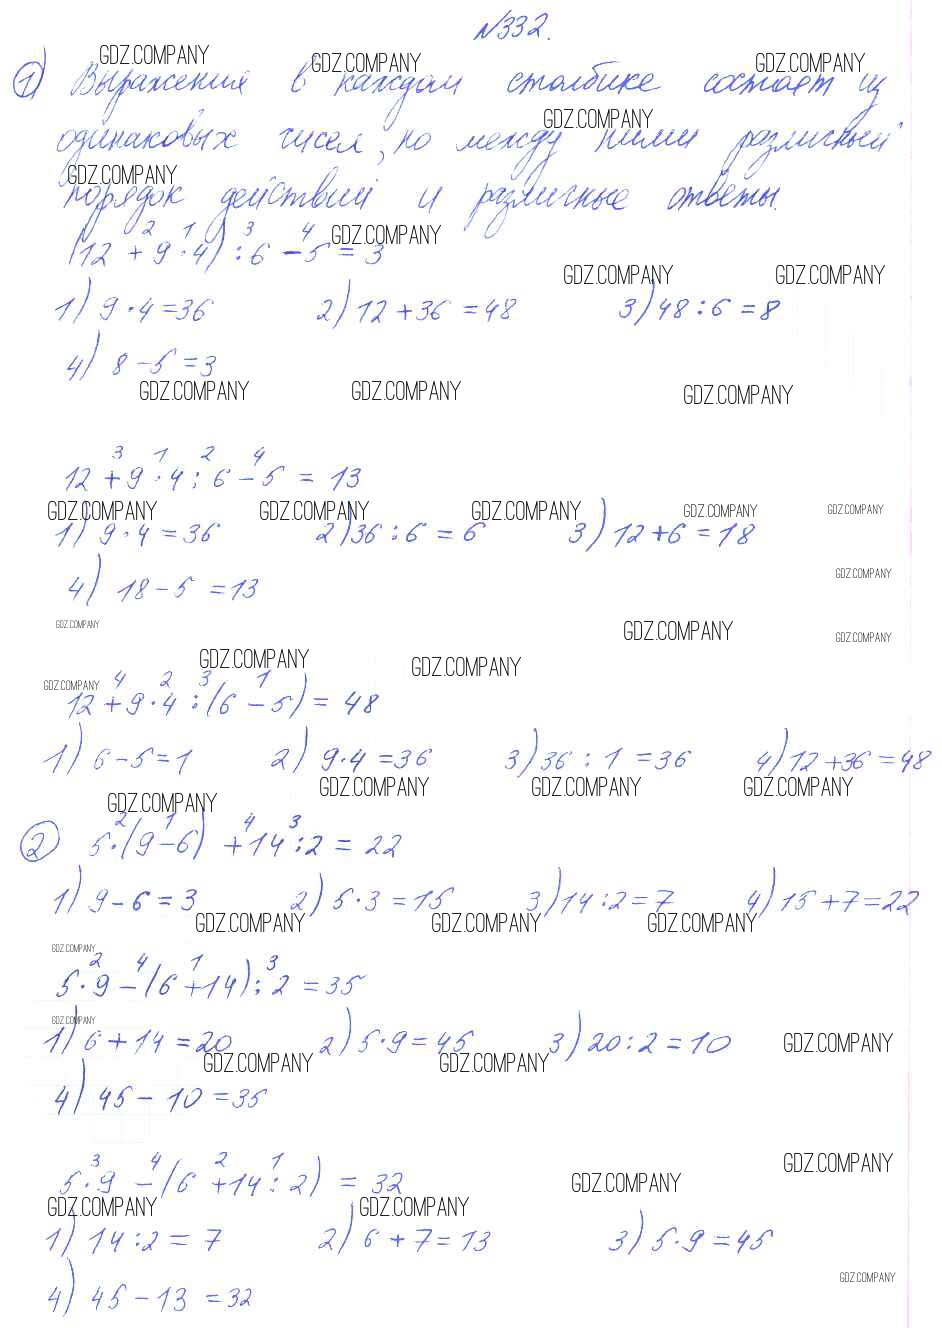 №332.
GDZ.COMPANY GDZ.COMPANY GDZ.COMPANY
1) Выражения в каждом столбике состоят из
GDZ.COMPANY
одинаковых чисел, но между ними различный
GDZ.COMPANY
порядок действий и различные ответы.
2 1 3 4
GDZ.COMPANY
(12 + 9 · 4) : 6 - 5 = 3
GDZ.COMPANY GDZ.COMPANY
1) 9 · 4 = 36 2) 12 + 36 = 48 3) 48 : 6 = 8
4) 8 - 5 = 3
GDZ.COMPANY GDZ.COMPANY GDZ.COMPANY
3 1 2 4
12 + 9 · 4 : 6 - 5 = 13
GDZ.COMPANY GDZ.COMPANY GDZ.COMPANY GDZ.COMPANY GDZ.COMPANY
1) 9 · 4 = 36 2) 36 : 6 = 6 3) 12 + 6 = 18
GDZ.COMPANY
4) 18 - 5 = 13
GDZ.COMPANY GDZ.COMPANY GDZ.COMPANY
GDZ.COMPANY GDZ.COMPANY
GDZ.COMPANY
4 2 3 1
12 + 9 · 4 : (6 - 5) = 48
1) 6 - 5 = 1 2) 9 · 4 = 36 3) 36 : 1 = 36 4) 12 + 36 = 48
GDZ.COMPANY GDZ.COMPANY GDZ.COMPANY GDZ.COMPANY
2 1 4 3
2) 5 · (9 - 6) + 14 : 2 = 22
1) 9 - 6 = 3 2) 5 · 3 = 15 3) 14 : 2 = 7 4) 15 + 7 = 22
GDZ.COMPANY GDZ.COMPANY GDZ.COMPANY
GDZ.COMPANY
2 4 1 3
5 · 9 - (6 + 14) : 2 = 35
GDZ.COMPANY
1) 6 + 14 = 20 2) 5 · 9 = 45 3) 20 : 2 = 10 GDZ.COMPANY
GDZ.COMPANY GDZ.COMPANY
4) 45 - 10 = 35
3 4 2 1
GDZ.COMPANY
5 · 9 - (6 + 14 : 2) = 32 GDZ.COMPANY
GDZ.COMPANY GDZ.COMPANY
1) 14 : 2 = 7 2) 6 + 7 = 13 3) 5 · 9 = 45
GDZ.COMPANY
4) 45 - 13 = 32